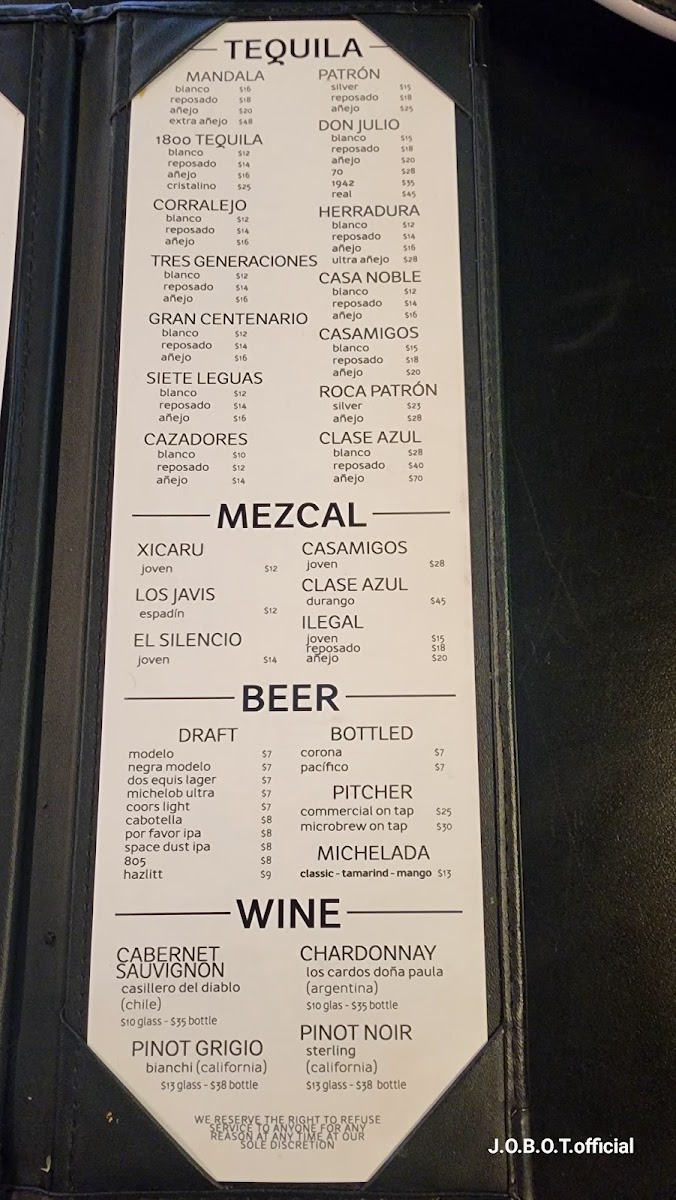 TEQUILA
MANDALA
blanco $16
reposado $18
añejo $20
extra añejo $48
1800 TEQUILA
blanco $12
reposado $14
añejo $16
cristalino $25
CORRALEJO
blanco $12
reposado $14
añejo $16
TRES GENERACIONES
blanco $12
reposado $14
añejo $16
GRAN CENTENARIO
blanco $12
reposado $14
añejo $16
SIETE LEGUAS
blanco $12
reposado $14
añejo $16
CAZADORES
blanco $10
reposado $12
añejo $14
PATRÓN
silver $15
reposado $18
añejo $25
DON JULIO
blanco $15
reposado $18
añejo $20
70 $28
1942 $35
real $45
HERRADURA
blanco $12
reposado $14
añejo $16
ultra añejo $28
CASA NOBLE
blanco $12
reposado $14
añejo $16
CASAMIGOS
blanco $15
reposado $18
añejo $20
ROCA PATRÓN
silver $23
añejo $28
CLASE AZUL
blanco $28
reposado $40
añejo $70
MEZCAL
XICARU
joven $12
LOS JAVIS
espadín $12
EL SILENCIO
joven $14
CASAMIGOS
joven $28
CLASE AZUL
durango $45
ILEGAL
joven $15
reposado $18
añejo $20
BEER
DRAFT
modelo $7
negra modelo $7
dos equis lager $7
michelob ultra $7
coors light $7
cabotella $8
por favor ipa $8
space dust ipa $8
805 $8
hazlitt $9
BOTTLED
corona $7
pacífico $7
PITCHER
commercial on tap $25
microbrew on tap $30
MICHELADA
classic - tamarind - mango $13
WINE
CABERNET
SAUVIGNON
casillero del diablo
(chile)
$10 glass - $35 bottle
PINOT GRIGIO
bianchi (california)
$13 glass - $38 bottle
CHARDONNAY
los cardos doña paula
(argentina)
$10 glas - $35 bottle
PINOT NOIR
sterling
(california)
$13 glass - $38 bottle
WE RESERVE THE RIGHT TO REFUSE
SERVICE TO ANYONE FOR ANY
REASON AT ANY TIME AT OUR
SOLE DISCRETION
J.O.B.O.T.official